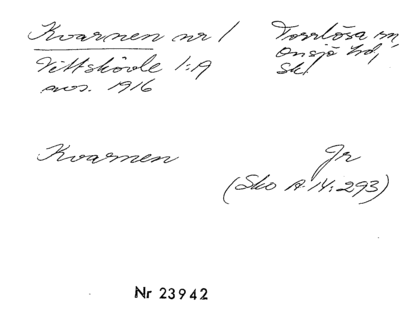 Kvarnen nr 1
Vittskövle 1:A
avs. 1916
Torrlösa sn,
Onsjö hd,
Sk.
Kvarnen
Jr
(Sko A 14:293)
Nr 23942